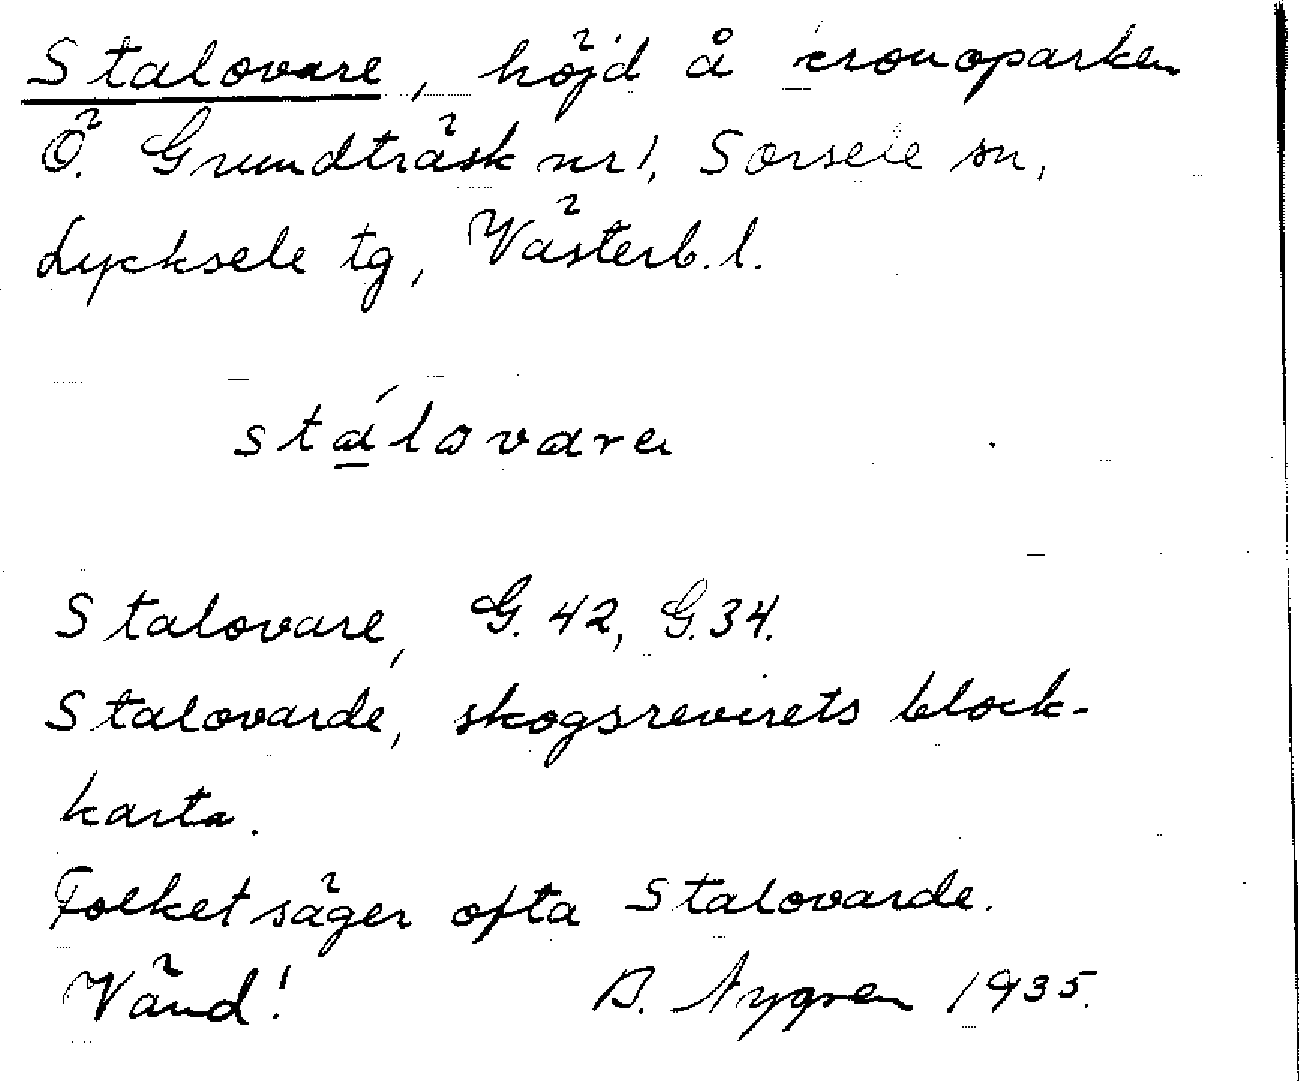 Stalovare, höjd å kronoparken
Ö. Grundträsk nr 1, Sorsele sn,
Lycksele tg, Västerb. l.
stálovara
Stalovare, G. 42, G. 34.
Stalovarde, skogsrevirets block-
karta.
Folket säger ofta Stalovarde.
Vänd! B. Nygren 1935.